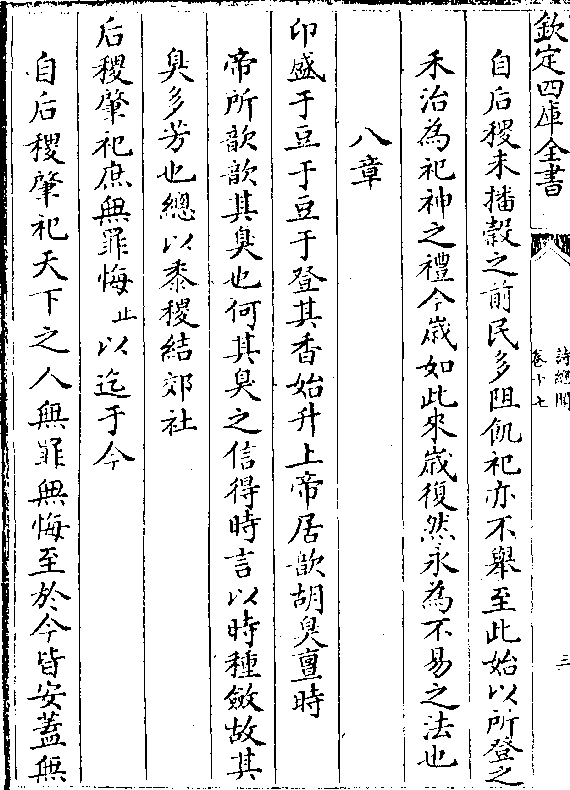 欽定四庫全書
詩經聞
卷十七
三
自后稷未播穀之前民多阻飢祀亦不舉至此始以所登之
禾治為祀神之禮今嵗如此來嵗復然永為不易之法也
八章
卬盛于豆于豆于登其香始升上帝居歆胡臭亶時
帝所歆歆其臭也何其臭之信得時言以時種斂故其
臭多芳也總以黍稷結郊社
后稷肇祀庶無罪悔止以迄于今
自后稷肇祀天下之人無罪無悔至於今皆安蓋無